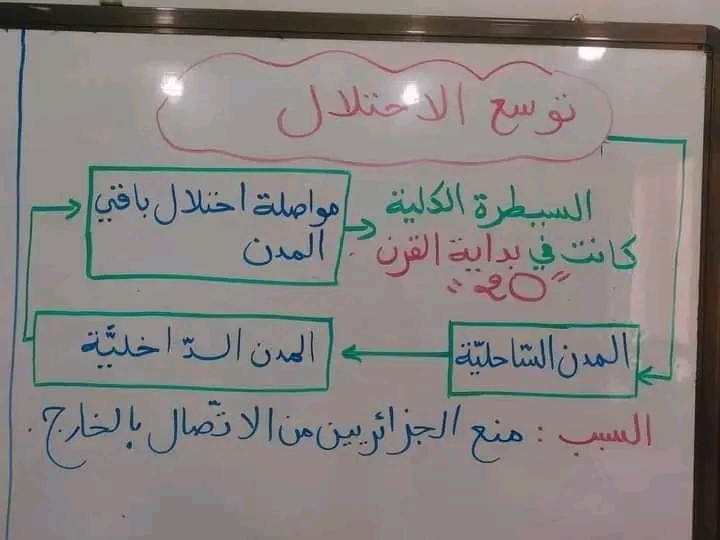 توسع الاحتلال
السيطرة الكلية
كانت في بداية القرن
"20"
مواصلة احتلال باقي
المدن
المدن السّاحليّة
المدن الدّاخليَّة
السبب : منع الجزائريين من الاتّصال بالخارج.